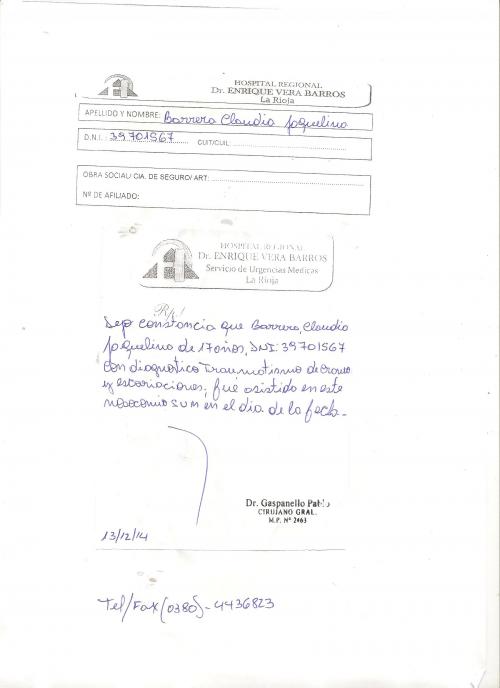 HOSPITAL REGIONAL
Dr. ENRIQUE VERA BARROS
La Rioja
APELLIDO Y NOMBRE: Barrera Claudia Jaquelina
D.N.I.: 39701567 CUIT/CUIL:
OBRA SOCIAL/ CIA. DE SEGURO/ ART:
Nº DE AFILIADO:
HOSPITAL REGIONAL
Dr. ENRIQUE VERA BARROS
Servicio de Urgencias Medicas
La Rioja
Rp/
Dejo constancia que Barrera, Claudia
Jaquelina de 17 años, DNI: 39701567
con diagnostico Traumatismo de craneo
y escoriaciones, fué asistida en este
nosocomio S.U.M en el día de la fecha.
Dr. Gaspanello Pablo
CIRUJANO GRAL.
M.P. Nº 2463
13/12/14
Tel/Fax (0380)-4436823